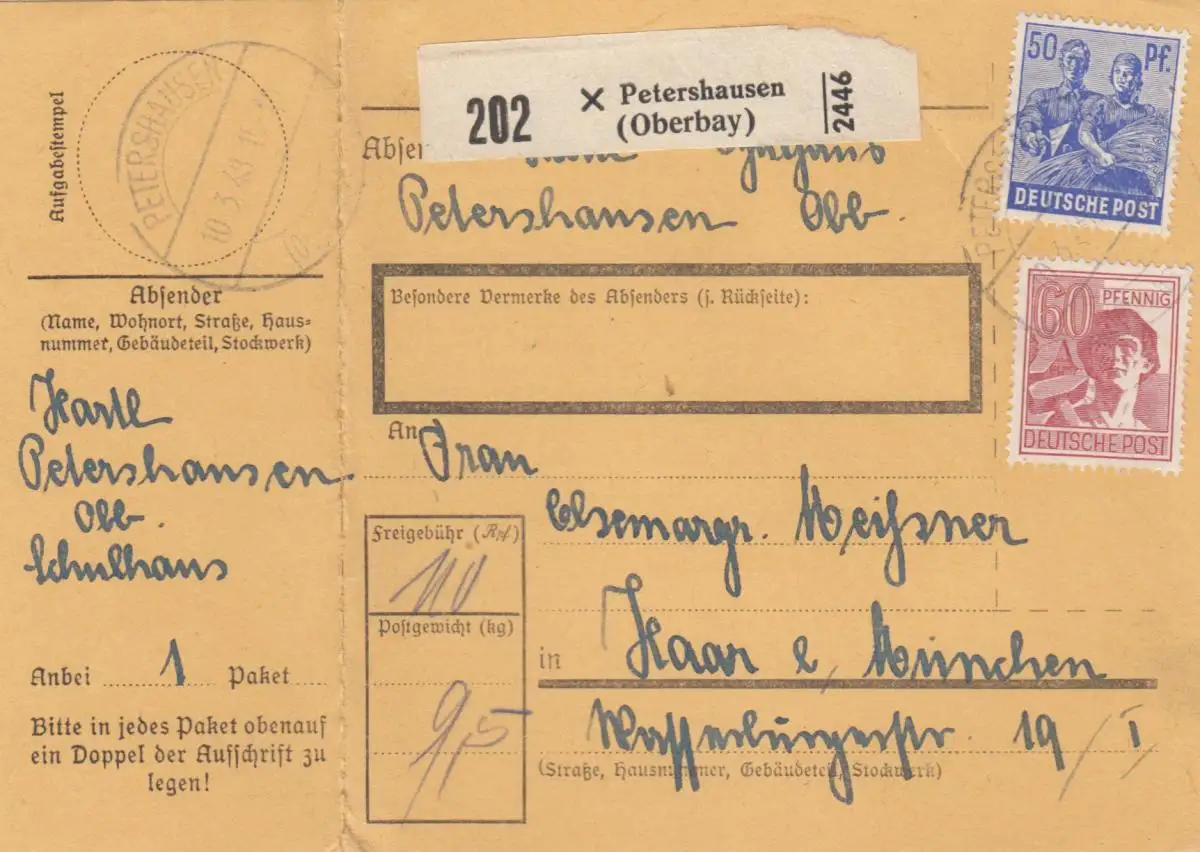 Aufgabestempel
PETERSHAUSEN
10 3 48 11
Absender
(Name, Wohnort, Straße, Haus=
nummer, Gebäudeteil, Stockwerk)
Hartl
Petershausen
Obb.
Schulhaus
Anbei 1 Paket
Bitte in jedes Paket obenauf
ein Doppel der Aufschrift zu
legen!
202 × Petershausen
(Oberbay)
2446
Absen
Petershausen Obb.
Besondere Vermerke des Absenders (s. Rückseite):
50 Pf.
DEUTSCHE POST
PETERS
60 PFENNIG
DEUTSCHE POST
An Frau
Elsemargr. Meißner
Freigebühr (Rpf)
110
Postgewicht (kg)
9,5
in Haar b. München
Wasserburgerstr. 19 / I
(Straße, Hausnummer, Gebäudeteil, Stockwerk)